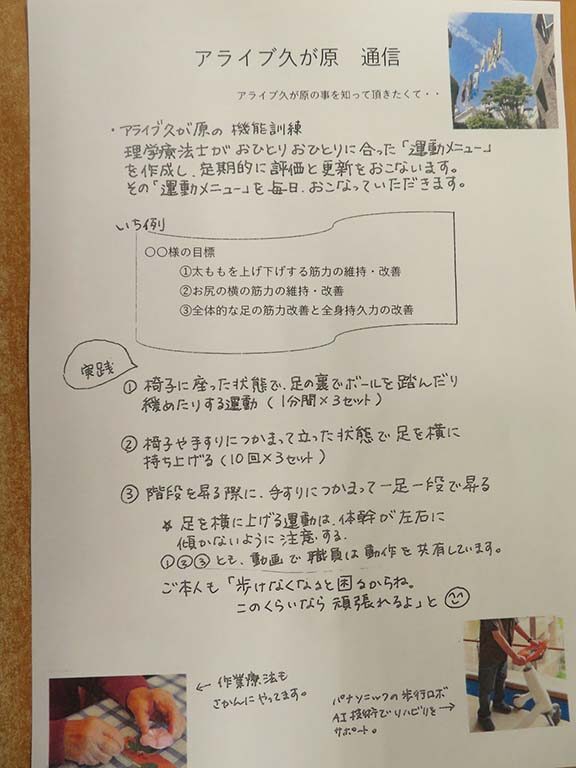 アライブ久が原　通信
アライブ久が原の事を知って頂きたくて・・
・アライブ久が原の機能訓練
理学療法士がおひとりおひとりに合った「運動メニュー」
を作成し、定期的に評価と更新をおこないます。
その「運動メニュー」を毎日、おこなっていただきます。
いち例
〇〇様の目標
①太ももを上げ下げする筋力の維持・改善
②お尻の横の筋力の維持・改善
③全体的な足の筋力改善と全身持久力の改善
実践
① 椅子に座った状態で、足の裏でボールを踏んだり
緩めたりする運動（1分間×3セット）
② 椅子や手すりにつかまって立った状態で足を横に
持ち上げる（10回×3セット）
③ 階段を昇る際に、手すりにつかまって一足一段で昇る
☆ 足を横に上げる運動は、体幹が左右に
傾かないように注意する。
①②③とも、動画で職員は動作を共有しています。
ご本人も「歩けなくなると困るからね。
このくらいなら頑張れるよ」と
← 作業療法も
さかんにやってます。
パナソニックの歩行ロボ
AI技術でリハビリを→
サポート。